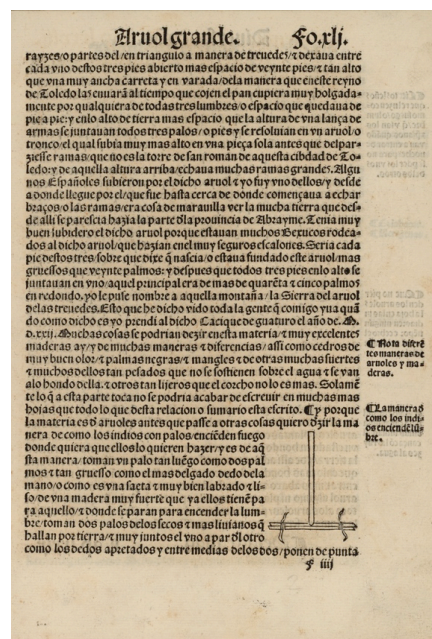 Aruol grande. Fo.xlj.
rayzes/o partes del/en triangulo a manera de treuedes/⁊ dexaua entre
cada vno destos tres pies abierto mas espacio de veynte pies/⁊ tan alto
que vna muy ancha carreta y en varada/dela manera que eneste reyno
de Toledo las enuarã al tiempo que cojen el pan cupiera muy holgada-
mente por qualquiera de todas tres lumbres/o espacio que quedaua de
pie a pie: y enlo alto de tierra mas espacio que la altura de vna lança de
armas se juntauan todos tres palos/o pies y se resoluian en vn aruol/o
tronco/el qual subia muy mas alto en vna pieça sola antes que despar-
ziesse ramas/que no es la torre de san roman de aquesta cibdad de To-
ledo: y de aquella altura arriba/echaua muchas ramas grandes. Algu
nos Españoles subieron por el dicho aruol ⁊ yo fuy vno dellos/y desde
a donde llegue por el/que fue hasta cerca de donde començaua a echar
braços/o las ramas/era cosa de marauilla ver la mucha tierra que des-
de alli se parescia hazia la parte dla prouincia de Abrayme. Tenia muy
buen subidero el dicho aruol porque estauan muchos Bexucos rodea-
dos al dicho aruol/que hazian enel muy seguros escalones. Seria cada
pie destos tres/sobre que dixe q̃ nascia/o estaua fundado este aruol/mas
gruessos que veynte palmos: y despues que todos tres pies enlo alto se
juntauan en vno/aquel principal era de mas de quarẽta ⁊ cinco palmos
en redondo. yo le puse nombre a aquella montaña/la Sierra del aruol
delas treuedes. Esto que he dicho vido toda la gente q̃ comigo yua quã
do como dicho es yo prendi al dicho Cacique de guaturo el año de. M.
D.xxij. Muchas cosas se podrian dezir enesta materia/⁊ muy excelentes
maderas ay/⁊ de muchas maneras ⁊ diferencias/assi como cedros de
muy buen olor/⁊ palmas negras/⁊ mangles ⁊ de otras muchas suertes
⁊ muchos dellos tan pesados que no se sostienen sobre el agua ⁊ se van
alo hondo della. ⁊ otros tan lijeros que el corcho no lo es mas. Solamẽ
te lo q̃ a esta parte toca no se podria acabar de escreuir en muchas mas
hojas que todo lo que desta relacion o sumario esta escrito. ¶ y porque
la materia es dl aruoles antes que passe a otras cosas quiero dzir la ma
nera de como los indios con palos/enciẽden fuego
donde quiera que ellos lo quieren hazer/y es de aq̃
sta manera/toman vn palo tan luẽgo como dos pal
mos ⁊ tan gruesso como el mas delgado dedo dela
mano/o como es vna saeta ⁊ muy bien labrado ⁊ li-
so/de vna madera muy fuerte que ya ellos tienẽ pa
ra aquello/⁊ donde se paran para encender la lum-
bre/toman dos palos delos secos ⁊ mas liuianos q̃
hallan por tierra/⁊ muy juntos el vno a par dl otro
como los dedos apretados y entre medias delos dos/ponen de punta
f iiij
¶ Nota disere
tes maneras de
aruoles y ma-
deras.
¶ La manera d
como los indi-
os enciendẽ lũ-
bre.